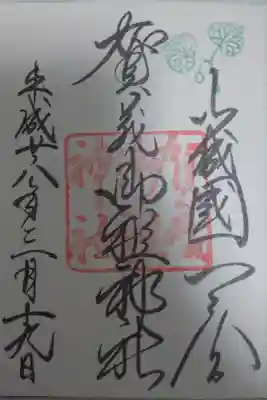 山城國一之宮
賀茂御祖神社
平成廿八年三月十九日